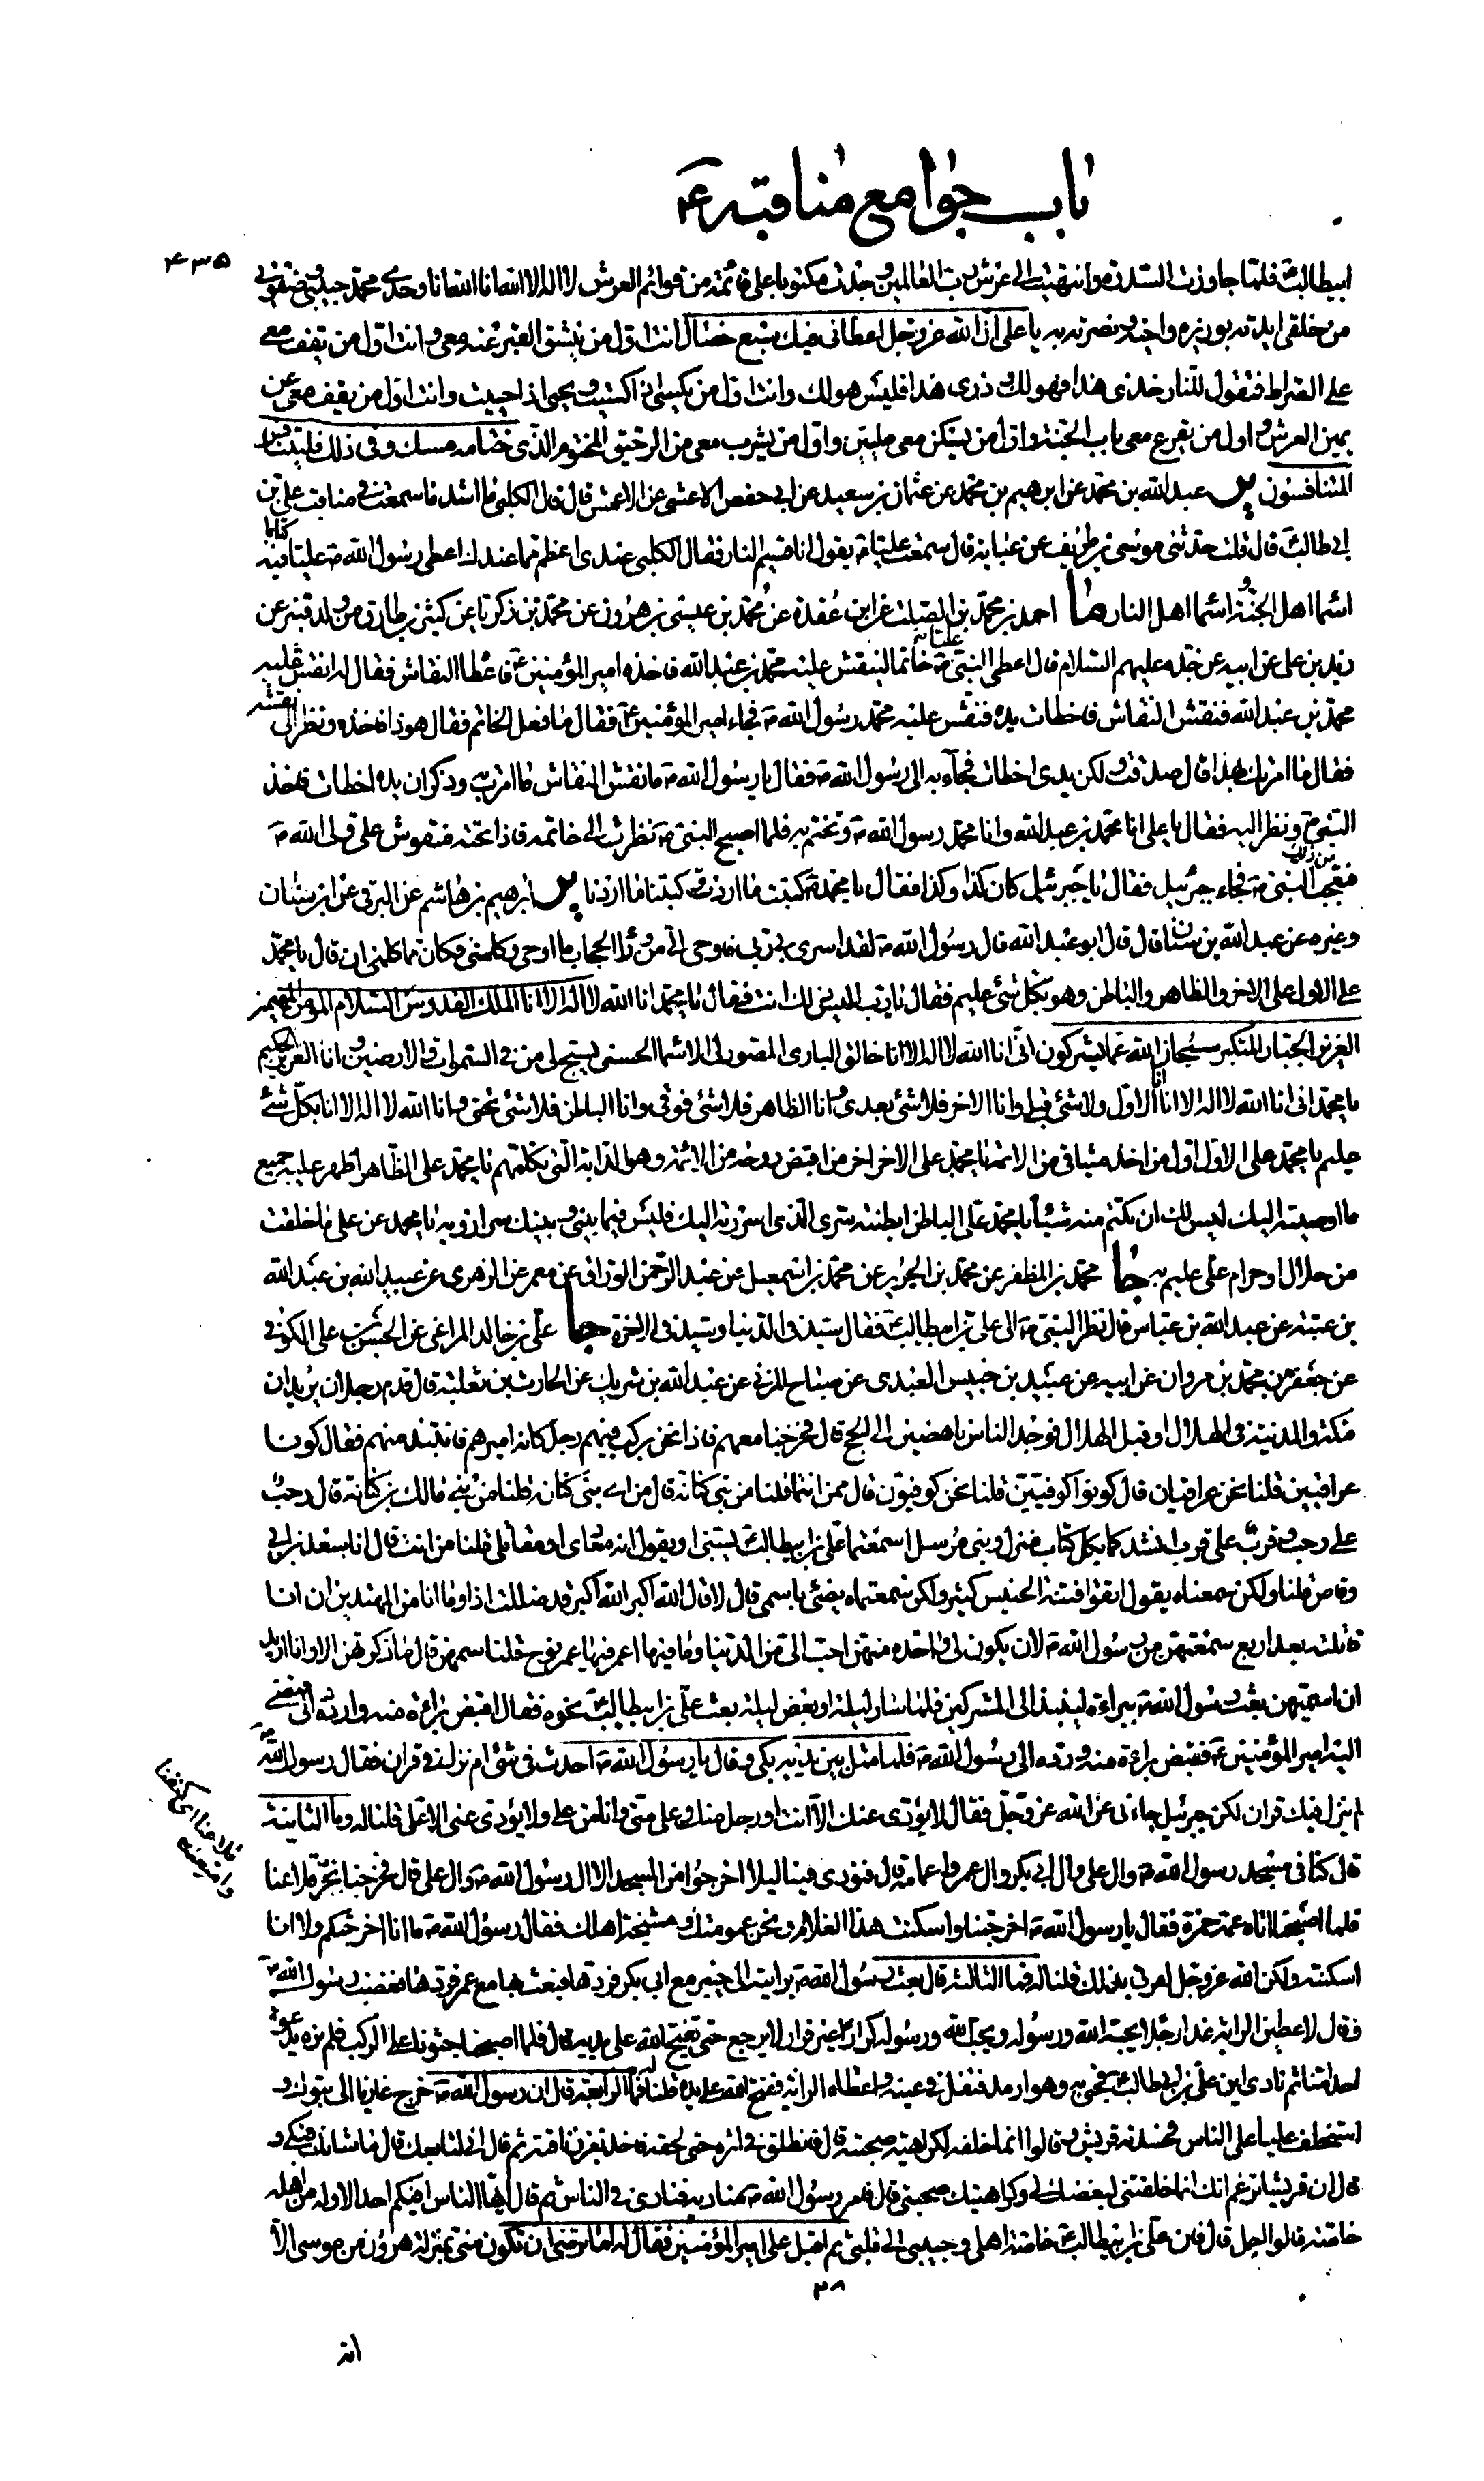 باب جوامع مناقبه ع
۴۳۵
ابیطالب ع فلما جاوزت السدرة وانتهیت الى عرش رب العالمین وجدت مکتوبا على قائمة من قوائم العرش لا اله الا الله انا الله انا وحدی محمد حبیبی وصفوتی
من خلقی ایدته بوزیره واخیه ونصرته به یا على ان الله عز وجل اعطانی فیک سبع خصال انت اول من ینشق القبر عنه معی وانت اول من یقف معی
على الصراط فتقول للنار خذی هذا فهو لک وذری هذا فلیس هو لک وانت اول من یکسى اذا کسیت ویحیى اذا حییت وانت اول من یقف معی عن
یمین العرش واول من یقرع معی باب الجنة واول من یسکن معی علیین واول من یشرب معی من الرحیق المختوم الذی ختامه مسک وفی ذلک فلیتنافس
المتنافسون یر عبد الله بن محمد عن ابرهیم بن محمد عن عثمان بن سعید عن ابی حفص الاعشى عن الاعمش قال قال الکلبی ما اشد ما سمعت فی مناقب علی بن
ابی طالب ع قال قلت حدثنی موسى بن طریف عن عبایة قال سمعت علیا ع یقول انا قسیم النار فقال الکلبی عندی اعظم مما عندک اعطى رسول الله ص علیا فیه کتابا
اسماء اهل الجنة واسماء اهل النار ما احمد بن محمد بن الصلت عن ابن عقدة عن محمد بن عیسى بن هرون عن محمد بن زکریا عن کثیر بن طارق من ولد قنبر عن
زید بن على عن ابیه عن جده علیهم السلام قال اعطى النبی ص علیا ع خاتما لینقش علیه محمد بن عبد الله فاخذه امیر المؤمنین ع فاعطاه النقاش فقال له انقش علیه
محمد بن عبد الله فنقش النقاش فاخطات یده فنقش علیه محمد رسول الله ص فجاء امیر المؤمنین ع فقال ما فعل الخاتم فقال هو ذا فاخذه ونظر الى نقشه
فقال ما امرتک بهذا قال صدقت ولکن یدی اخطات فجآء به الى رسول الله ص فقال یا رسول الله ص ما نقش النقاش ما امرت به وذکر ان یده اخطات فاخذ
النبی ص ونظر الیه فقال یا على انا محمد بن عبد الله وانا محمد رسول الله ص وتختم به فلما اصبح النبی ص نظر الى خاتمه فاذا تحته منقوش على ولى الله ص
فتعجب من ذلک النبی ص فجاء جبرئیل فقال یا جبرئیل کان کذا وکذا فقال یا محمد ص کتبت ما اردت وکتبنا ما اردنا یر ابرهیم بن هاشم عن البرقی عن ابن سنان
وغیره عن عبد الله بن سنان قال قال ابو عبد الله قال رسول الله ص لقد اسرى بی ربی فاوحى الى من وراء الحجاب ما اوحى وکلمنی وکان مما کلمنی ان قال یا محمد
على الاول على الاخر والظاهر والباطن وهو بکل شئ علیم فقال یا رب الیس ذلک انت فقال یا محمد انا الله لا اله الا انا الملک القدوس السلام المؤمن المهیمن
العزیز الجبار المتکبر سبحان الله عما یشرکون انی انا الله لا اله الا انا خالق البارئ المصور لی الاسماء الحسنى یسبح لی من فی السموات والارضین وانا العزیز الحکیم
یا محمد انی انا الله لا اله الا انا انا الاول ولا شئ قبلی وانا الاخر فلا شئ بعدی وانا الظاهر فلا شئ فوقی وانا الباطن فلا شئ تحتی وانا الله لا اله الا انا بکل شئ
علیم یا محمد على الاول اول من اخذ میثاقی من الائمة یا محمد على الاخر اخر من اقبض روحه من الائمة وهو الدابة التی تکلمهم یا محمد على الظاهر اظهر علیه جمیع
ما اوصیته الیک لیس لک ان تکتم منه شیئا یا محمد على الباطن ابطنته سری الذی اسررته الیک فلیس فیما بینی وبینک سر ازویه یا محمد عن على ما خلقت
من حلال او حرام على علیم به جا محمد بن المظفر عن محمد بن الجریر عن محمد بن اسمعیل عن عبد الرحمن الوراق عن معمر عن الزهری عن عبید الله بن عبد الله
بن عتبة عن عبد الله بن عباس قال نظر النبی ص الى على بن ابیطالب ع فقال سید فی الدنیا وسید فی الاخرة جا على بن خالد المراغی عن الحسن بن على الکوفی
عن جعفر بن محمد بن مروان عن ابیه عن عبید بن خنیس العبدی عن صباح المزنی عن عبد الله بن شریک عن الحارث بن ثعلبة قال قدم رجلان یریدان
مکة والمدینة فی الهلال او قبل الهلال فوجد الناس ناهضین الى الحج قال فخرجنا معهم فاذا نحن برکب فیهم رجل کانه امیرهم فانتبذ منهم فقال کونا
عراقیین قلنا نحن عراقیان قال کونوا کوفیین قلنا نحن کوفیون قال ممن انتما قلنا من بنی کنانة قال من ای بنی کنانة قلنا من بنی مالک بن کنانة قال رحب
على رحب وقرب على قرب انشدکما بکل کتاب منزل ونبی مرسل اسمعتما على بن ابیطالب ع یسبنی او یقول انه معادی او مقاتلی قلنا من انت قال انا سعد بن ابی
وقاص قلنا ولکن سمعناه یقول اتقوا فتنة الخنیس قال الخنیس کثیر ولکن سمعتماه یضئ باسمی قال لا قال الله اکبر الله اکبر قد ضللت اذا وما انا من المهتدین ان انا
قاتلته بعد اربع سمعتهن من رسول الله ص لان یکون لی واحدة منهن احب الى من الدنیا وما فیها اعمر فیها عمر نوح قلنا سمهن قال ما ذکرتهن الا وانا ارید
ان اسمیهن بعث رسول الله ص ببراءة لینبذ الى المشرکین فلما سار لیلة او بعض لیلة بعث على بن ابیطالب ع نحوه فقال اقبض براءة منه واردده الى فمضى
الیه امیر المؤمنین ع فقبض براءة منه ورده الى رسول الله ص فلما مثل بین یدیه بکى وقال یا رسول الله ص احدث فی شئ ام نزل فی قران فقال رسول الله ص
لم ینزل فیک قران لکن جبرئیل جاءنی عن الله عز وجل فقال لا یؤدی عنک الا انت او رجل منک وعلى منی وانا من على ولا یؤدی عنی الا على قلنا له وما الثانیة
قال کنا فی مسجد رسول الله ص وال على وال ابی بکر وال عمر واعمامه قال فنودی فینا لیلا اخرجوا من المسجد الا ال رسول الله ص وال على قال فخرجنا نجر قلاعنا
فلما اصبحنا اتاه عمه حمزة فقال یا رسول الله ص اخرجتنا واسکنت هذا الغلام ونحن عمومتک ومشیخة اهلک فقال رسول الله ص ما انا اخرجتکم ولا انا
اسکنته ولکن الله عز وجل امرنی بذلک قلنا له فما الثالثة قال بعث رسول الله ص برایته الى خیبر مع ابی بکر فردها فبعث بها مع عمر فردها فغضب رسول الله ص
وقال لاعطین الرایة غدا رجلا یحبه الله ورسوله ویحب الله ورسوله کرارا غیر فرار لا یرجع حتى یفتح الله على یدیه قال فلما اصبحنا جثونا على الرکب فلم نره یدعو
احدا منا ثم نادى این على بن ابی طالب ع فجئ به وهو ارمد فتفل فی عینه واعطاه الرایة ففتح الله على یده قلنا له فما الرابعة قال ان رسول الله ص خرج غازیا الى تبوک و
استخلف علیا على الناس فحسدته قریش وقالوا انما خلفه لکراهیة صحبته قال فانطلق فی اثره حتى لحقه فاخذ بغرز ناقته ثم قال انی لتابعک قال ما شانک فبکى و
قال ان قریشا تزعم انک انما خلفتنی لبغضک لی وکراهیتک صحبتی قال فامر رسول الله ص منادیه فنادى فی الناس ثم قال ایها الناس افیکم احد الا وله من اهله
خاصة قالوا اجل قال فان على بن ابیطالب ع خاصة اهلی وحبیبی الى قلبی ثم اقبل على امیر المؤمنین فقال له اما ترضى ان تکون منی بمنزلة هرون من موسى الا
قلاعنا ای کنفنا
وامتعتنا
۳۸
انه